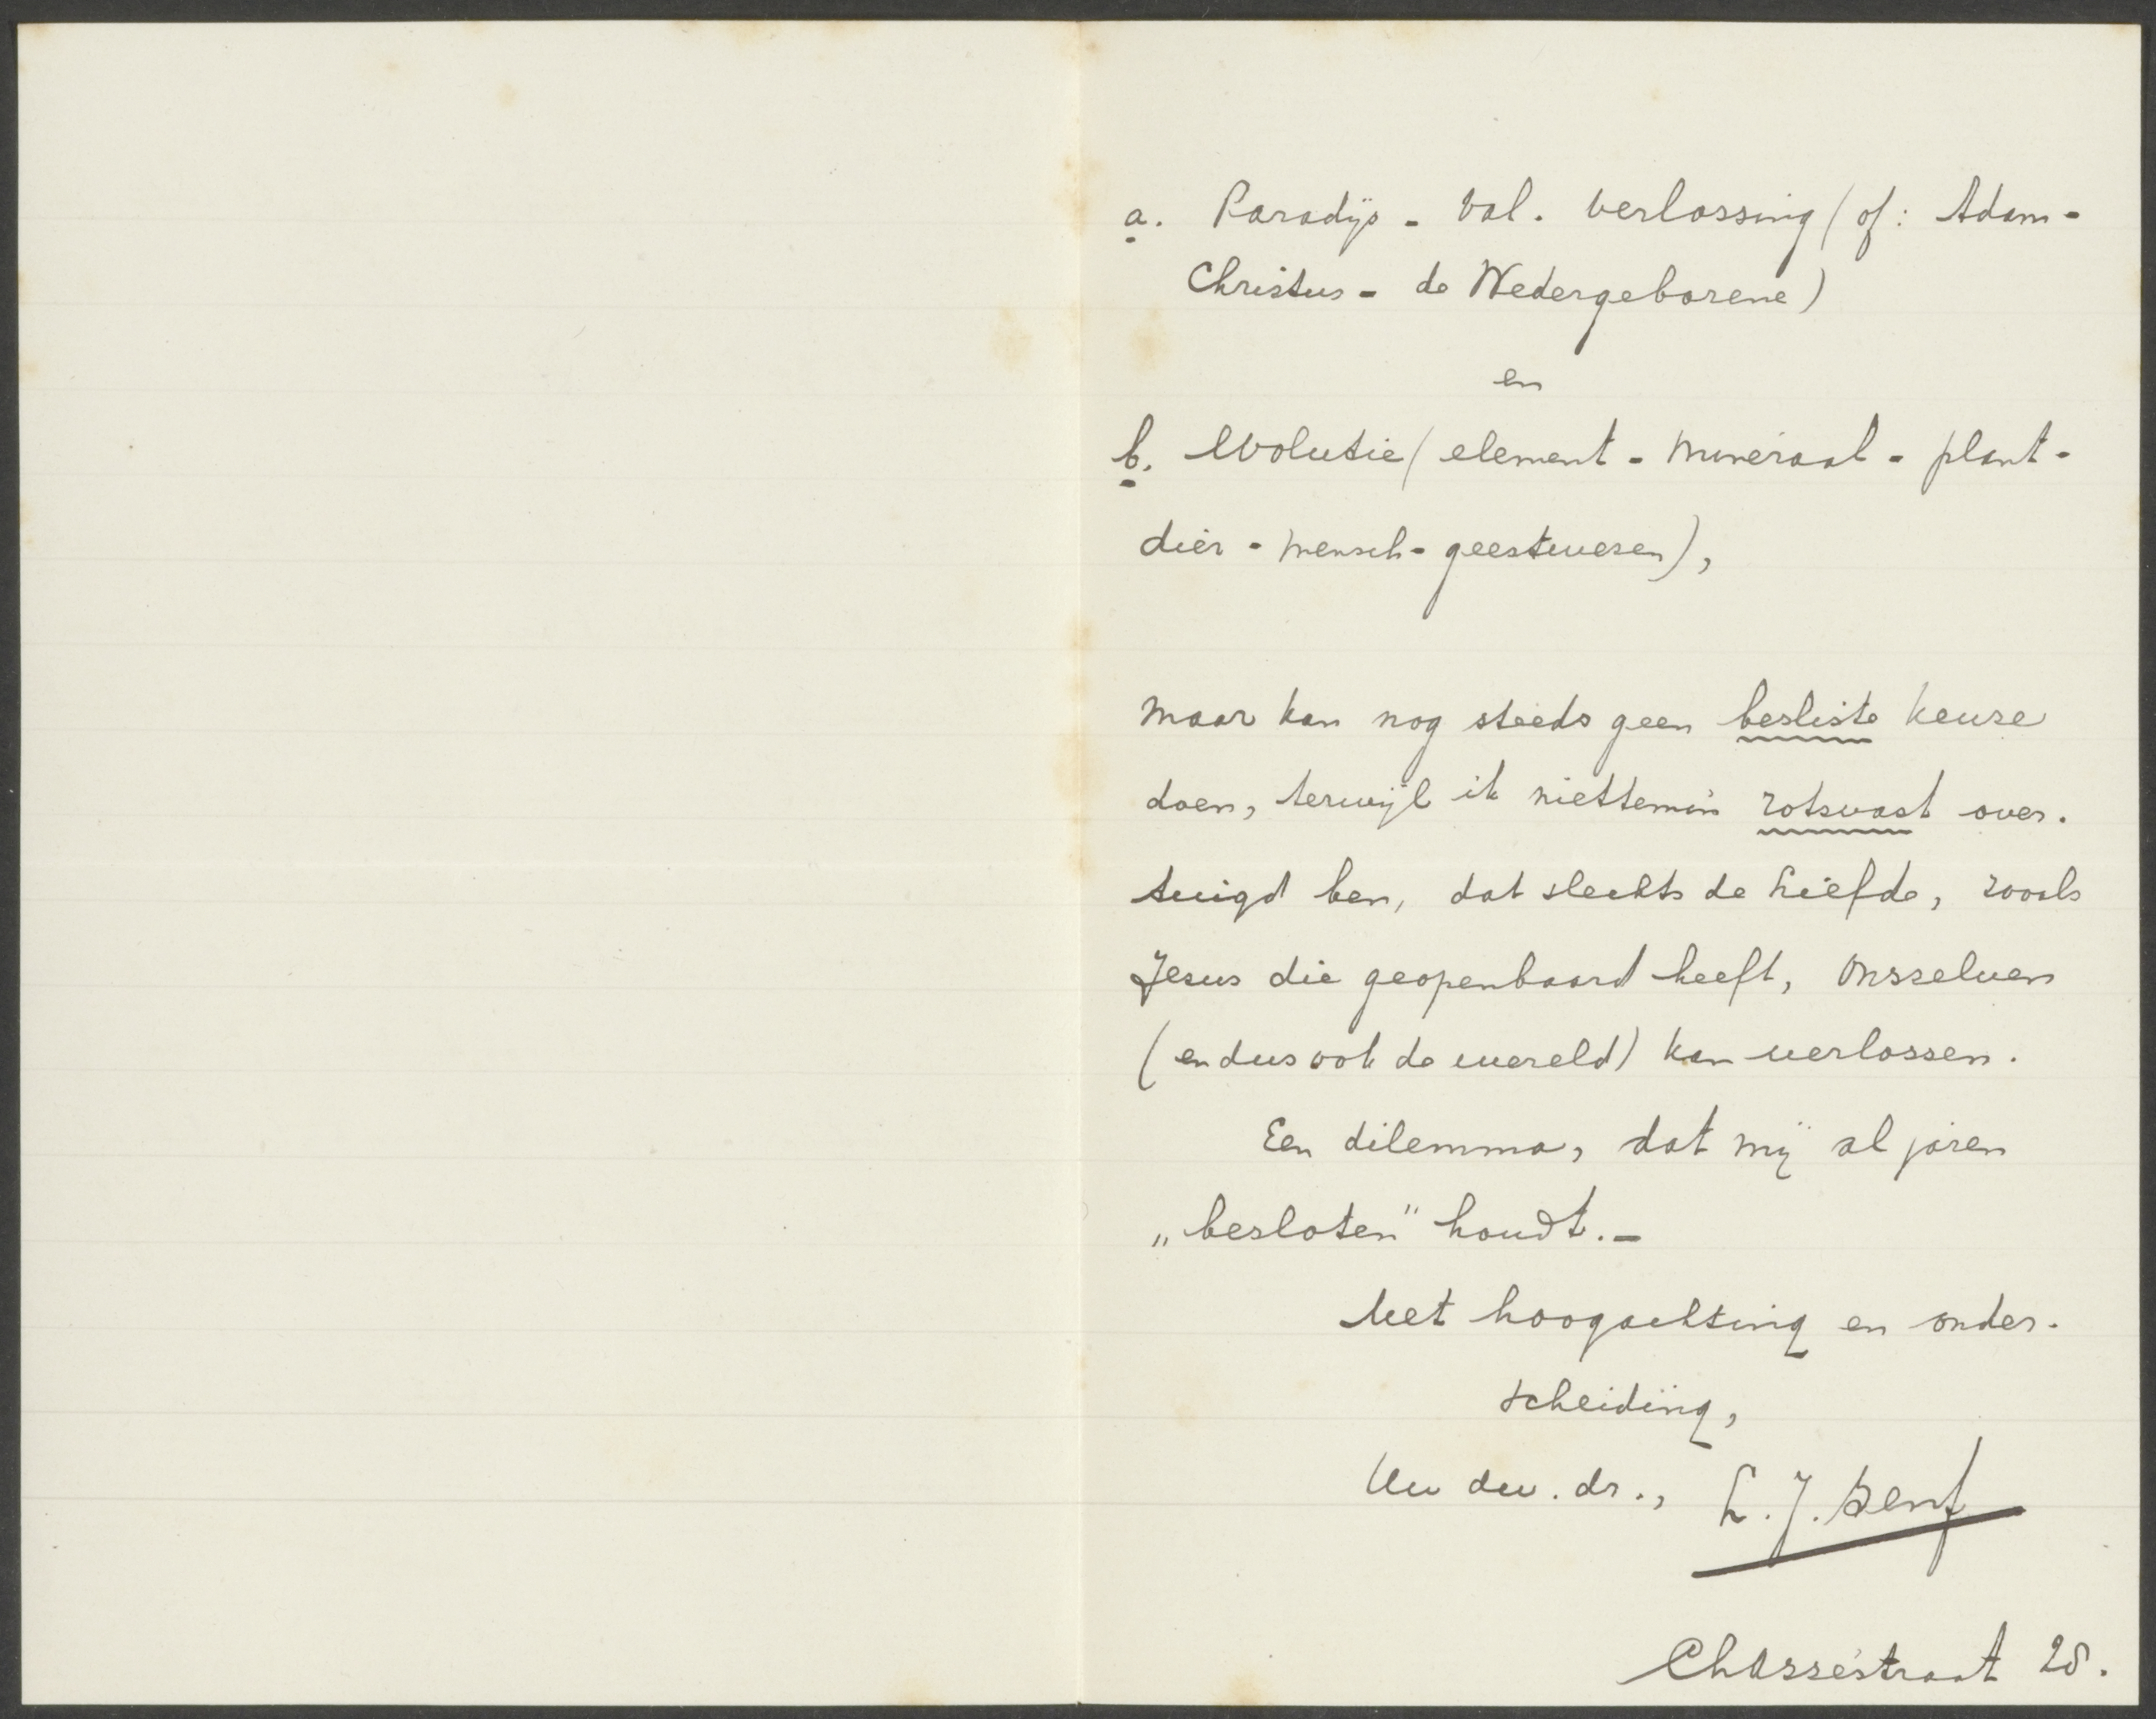 a. Paradijs - val. verlossing (of: Adam -
Christus - de Wedergeborene)
en
b. Evolutie (element - mineraal - plant -
dier - mensch - geestwezen),
maar kan nog steeds geen besliste keuze
doen, terwijl ik niettemin rotsvast over-
tuigd ben, dat slechts de Liefde, zooals
Jezus die geopenbaard heeft, onszelven
(en dus ook de wereld) kan verlossen.
Een dilemma, dat mij al jaren
„besloten" houdt. -
Met hoogachting en onder-
scheiding,
Uw dw. dr., L. J. Senf
Chasséstraat 28.